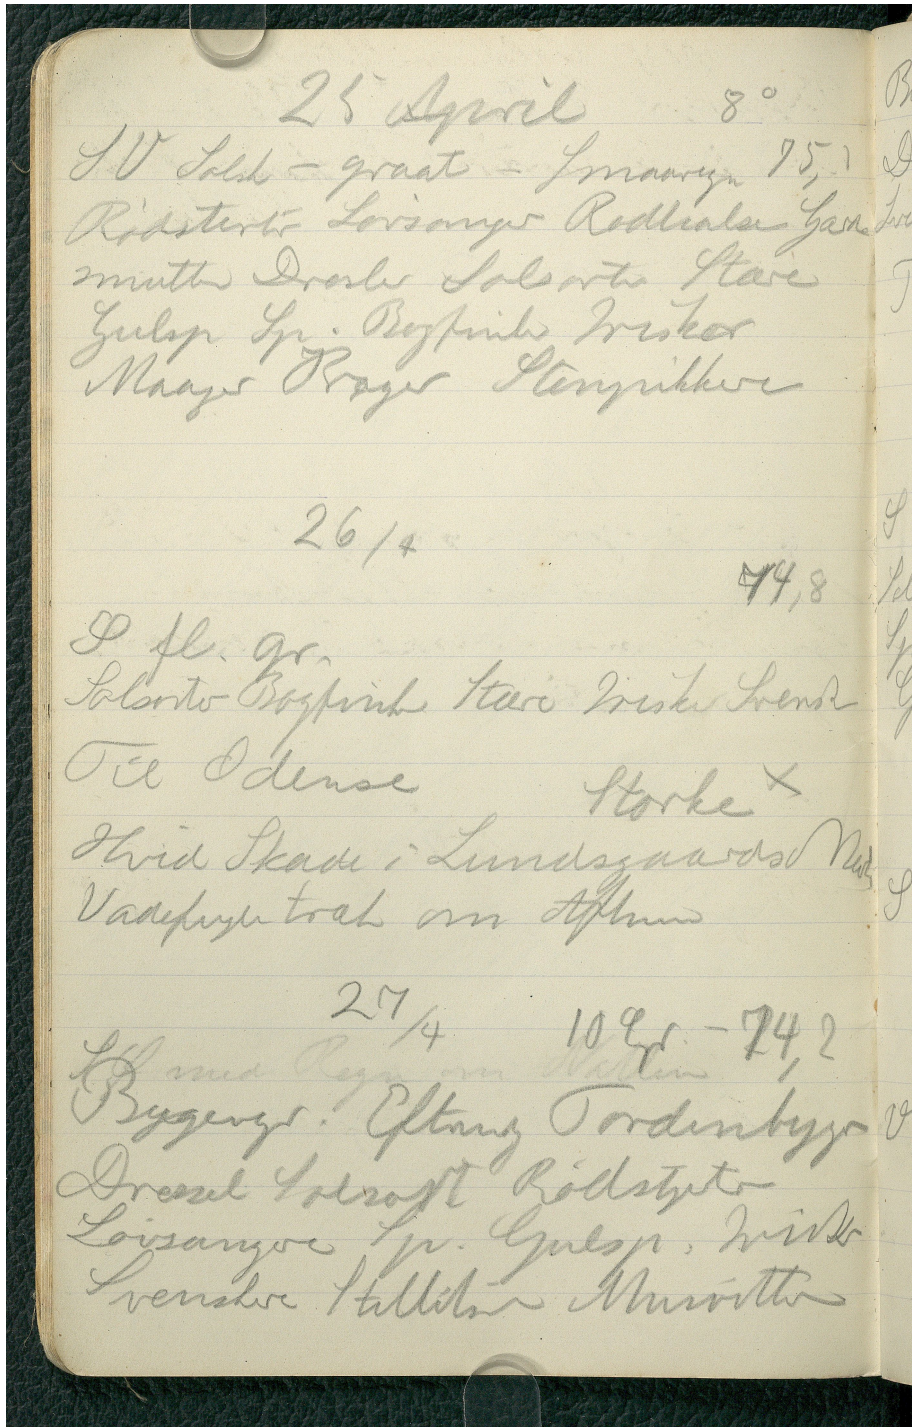 25 April 8°
SV Solsk - graat - Smaaregn 75,1
Rødstjerter Løvsanger Rødkalse Gærde
smutter Drosler Solsorte Stære
Gulsp Sp. Bogfinke Irisker
Maager Krager Stenpikkere
26/4
74,8
S fl. gr.
Solsorte Bogfinke Stære Iriske Svensk
Til Odense
Storke x
Hvid Skade i Lundsgaards
Vadefugletræk om Aftnen
27/4 10 Gr - 74,2
med Regn om Natten
Bygevejr. Eftermdg Tordenbyger
Drossel Solsort Rødstjerter
Løvsangere Sp. Gulsp. Irisker
Svenskere Stillitser Musvitter